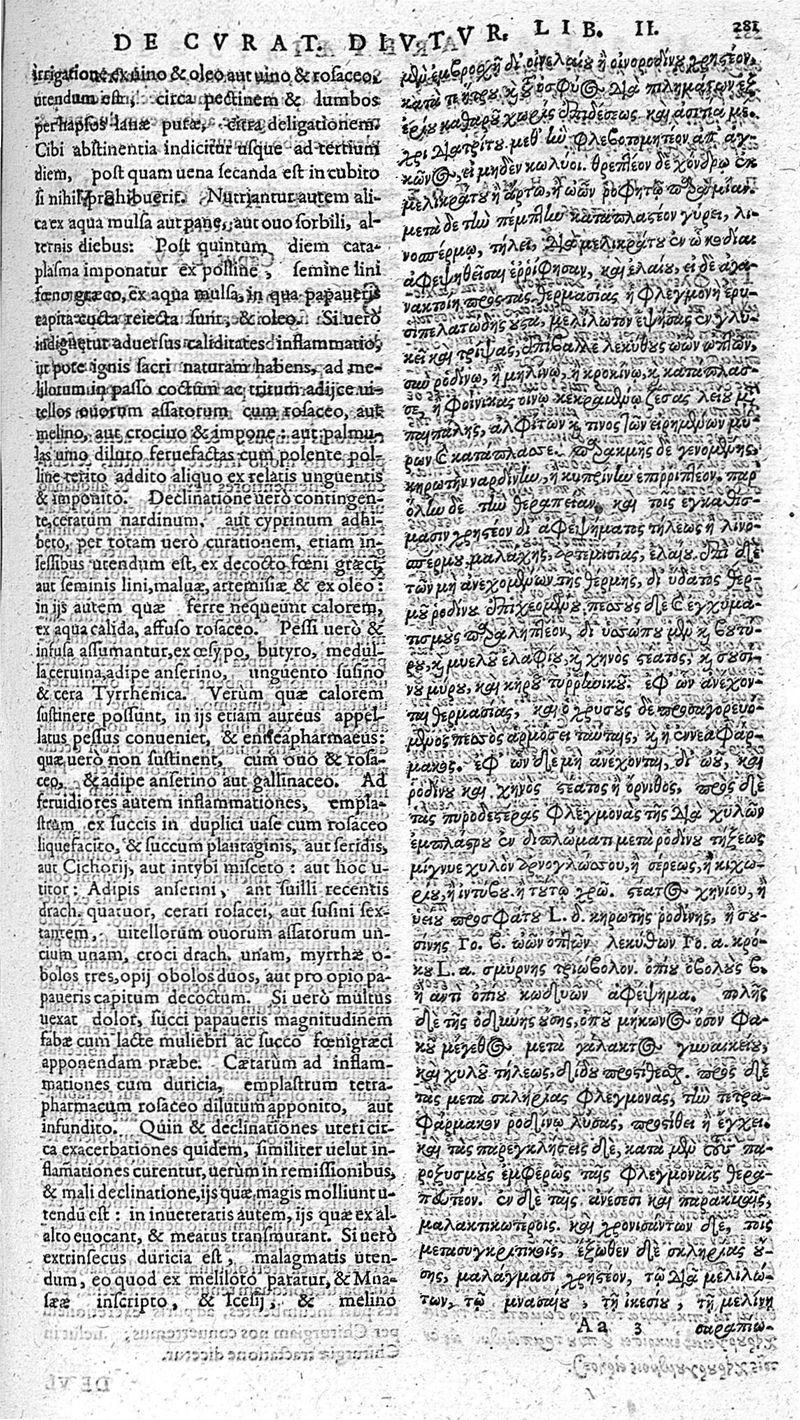 DE CVRAT. DIVTVR. LIB. II. 281
irrigatione ex uino & oleo aut uino & rosaceo,
utendum est, circa pectinem & lumbos
per hapsos lanæ puræ, citra deligationem.
Cibi abstinentia indicitur usque ad tertium
diem, post quam uena secanda est in cubito
si nihil prohibuerit. Nutriantur autem ali-
ca ex aqua mulsa aut pane, aut ouo sorbili, al-
ternis diebus: Post quintum diem cata-
plasma imponatur ex polline, semine lini
fœnogræco, ex aqua mulsa, in qua papaueris
capita cocta reiecta sunt, & oleo. Si uerò
indignetur aduersus caliditates inflammatio,
ut pote ignis sacri naturam habens, ad me-
lilotum in passo coctum ac tritum adijce ui-
tellos ouorum assatorum cum rosaceo, aut
melino, aut crocino & impone: aut palmu-
las uino diluto feruefactas cum polente pol-
line terito addito aliquo ex relatis unguentis
& imponito. Declinatione uerò contingen-
te, ceratum nardinum, aut cyprinum adhi-
beto, per totam uerò curationem, etiam in-
sessibus utendum est, ex decocto fœni græci,
aut seminis lini, maluæ, artemisiæ & ex oleo:
in ijs autem quæ ferre nequeunt calorem,
ex aqua calida, affuso rosaceo. Pessi uerò &
infusa assumantur, ex œsypo, butyro, medul-
la ceruina, adipe anserino, unguento susino
& cera Tyrrhenica. Verùm quæ calorem
sustinere possunt, in ijs etiam aureus appel-
latus pessus conueniet, & enneapharmacus:
quæ uerò non sustinent, cum ouo & rosa-
ceo, & adipe anserino aut gallinaceo. Ad
feruidiores autem inflammationes, empla-
strum ex succis in duplici uase cum rosaceo
liquefacito, & succum plantaginis, aut seridis,
aut Cichorij, aut intybi misceto: aut hoc u-
titor: Adipis anserini, aut suilli recentis
drach. quatuor, cerati rosacei, aut susini sex-
tantem, uitellorum ouorum assatorum un-
cium unam, croci drach. unam, myrrhæ o-
bolos tres, opij obolos duos, aut pro opio pa-
paueris capitum decoctum. Si uerò multus
uexat dolor, succi papaueris magnitudinem
fabæ cum lacte muliebri ac succo fœnigræci
apponendam præbe. Cæterùm ad inflam-
mationes cum duricia, emplastrum tetra-
pharmacum rosaceo dilutum apponito, aut
infundito. Quin & declinationes uteri cir-
ca exacerbationes quidem, similiter uelut in-
flamationes curentur, uerùm in remissionibus,
& mali declinatione, ijs quæ magis molliunt u-
tendū est: in inueteratis autem, ijs quæ ex al-
alto euocant, & meatus transmutant. Si uerò
extrinsecus duricia est, malagmatis uten-
dum, eo quod ex meliloto paratur, & Mna-
sææ inscripto, & Icesij, & melino
μὲν ἐμβροχῇ δι' οἰνελαίου ἢ οἰνοροδίνου χρηστέον,
κατὰ πέπρου κ̀ ὀσφυος διὰ πιλημάτων ἐξ
ἐρίου καθαροῦ χωρὶς ἐπιδέσεως. καὶ ἀσιτία μέ-
χρι διατρίτου μεθ' ἣν φλεβοτομητέον ἀπ' ἀγ-
κῶνος, εἰ μηδὲν κωλύοι. θρεπτέον δὲ χόνδρῳ ἐκ
μελικράτου ἢ ἄρτῳ, ἢ ὠῶν ῥοφητῷ παρὰ μίαν.
μετὰ δὲ τὴν πέμπτην καταπλαστέον γύρει, λι-
νοσπέρμῳ, τήλει, διὰ μελικράτου ἐν ᾧ κωδίαι
ἀφεψηθεῖσαι ἐῤῥίφησαν, καὶ ἐλαίου, εἰ δὲ ἀγα-
νακτοίη πρὸς τὰς θερμασίας ἡ φλεγμονὴ ἐρυ-
σιπελατώδης οὖσα, μελίλωτον ἑψήσας ἐν γλυ-
κεῖ καὶ τρίψας, ἐπίβαλλε λεκύθους ὠῶν ὀπτῶν,
σὺν ῥοδίνῳ, ἢ μηλίνῳ, ἢ κροκίνῳ, κ̀ κατάπλασ-
σε, ἢ φοίνικας οἴνῳ κεκραμένῳ ζέσας λείου μετὰ
παιπάλης, ἀλφίτων κ̀ τινος τῶν εἰρημένων μύ-
ρων κ̀ κατάπλασε. παρακμῆς δὲ γενομένης,
κηρωτὴν ναρδίνην, ἢ κυπρίνην ἐπιρριπτέον. παρ'
ὅλην δὲ τὴν θεραπείαν, καὶ τοῖς ἐγκαθίσ-
μασιν χρηστέον δι' ἀφεψήματος τήλεως ἢ λινο-
σπέρμου, μαλάχης, ἀρτεμισίας, ἐλαίου. ἐπὶ δὲ
τῶν μὴ ἀνεχομένων τῆς θέρμης, δι' ὕδατος θερ-
μοῦ ῥοδίνου ἐπιχεομένου, πεσσοὺς δὲ κ̀ ἐγχυμα-
τισμοὺς παραληπτέον, δι' ὑσώπου μὲν κ̀ βουτύ-
ρου, κ̀ μυελοῦ ἐλαφίου, κ̀ χηνὸς στέατος, κ̀ σουσί-
νου μύρου, καὶ κηροῦ τυρρηνικοῦ. ἐφ' ὧν ἀνέχον-
ται θερμασίας, καὶ ὁ χρυσοῦς δὲ προσαγορευό-
μενος πεσσὸς ἁρμόσει ταύταις, κ̀ ἡ ἐννεαφάρ-
μακος. ἐφ' ὧν δὲ μὴ ἀνέχονται, δι' ὠοῦ, καὶ
ῥοδίνου καὶ χηνὸς στέατος ἢ ὄρνιθος. πρὸς δὲ
τὰς πυρωδεστέρας φλεγμονὰς τῆς διὰ χυλῶν
ἐμπλάστρου ἐν διπλώματι μετὰ ῥοδίνου τήξεως
μίγνυε χυλὸν ἀρνογλώσσου, ἢ σέρεως, ἢ κιχω-
ρίου, ἢ ἰντύβου. ἢ τούτῳ χρῶ. στέατος χηνίου, ἢ
ὑείου προσφάτου L. δ. κηρωτῆς ῥοδίνης, ἢ σου-
σίνης Γο. β. ὠῶν ὀπτῶν λεκύθων Γο. α. κρό-
κου L. α. σμύρνης τριώβολον. ὀπίου ὀβολοὺς β.
ἢ ἀντὶ ὀπίου κωδειῶν ἀφέψημα. πολλῆς
δὲ τῆς ὀδύνης οὔσης, ὀποῦ μήκωνος ὅσον φα-
κοῦ μέγεθος μετὰ γάλακτος γυναικείου,
καὶ χυλοῦ τήλεως, δίδου προστίθεσθαι. πρὸς δὲ
τὰς μετὰ σκληρίας φλεγμονὰς, τὴν τετρα-
φάρμακον ῥοδίνῳ λύσας, προστίθει ἢ ἔγχει.
καὶ τὰς παρεγκλήσεις δὲ, κατὰ μὲν τοὺς πα-
ροξυσμοὺς ἐμφερῶς ταῖς φλεγμοναῖς θερα-
πευτέον. ἐν δὲ ταῖς ἀνέσεσι καὶ παρακμαῖς,
μαλακτικωτέροις. καὶ χρονισάντων δὲ, τοῖς
μετασυγκριτικοῖς, ἔξωθεν δὲ σκληρίας οὔ-
σης, μαλάγμασι χρηστέον, τῷ διὰ μελιλώ-
των, τῷ μνασαίου, τῇ ἰκεσίου, τῇ μηλίνῃ
Aa 3 σαραπίω-